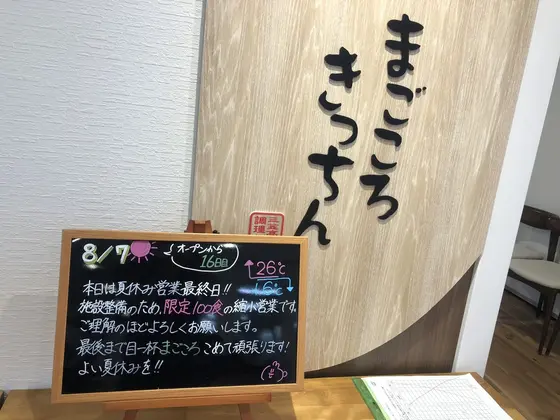 まごころ
きっちん
三五高
調理
8/7
オープンから
16日目
↑26℃
↓16℃
本日は夏休み営業最終日!!
施設整備のため、限定100食の縮小営業です。
ご理解のほどよろしくお願いします。
最後まで目一杯まごころこめて頑張ります!
よい夏休みを!!